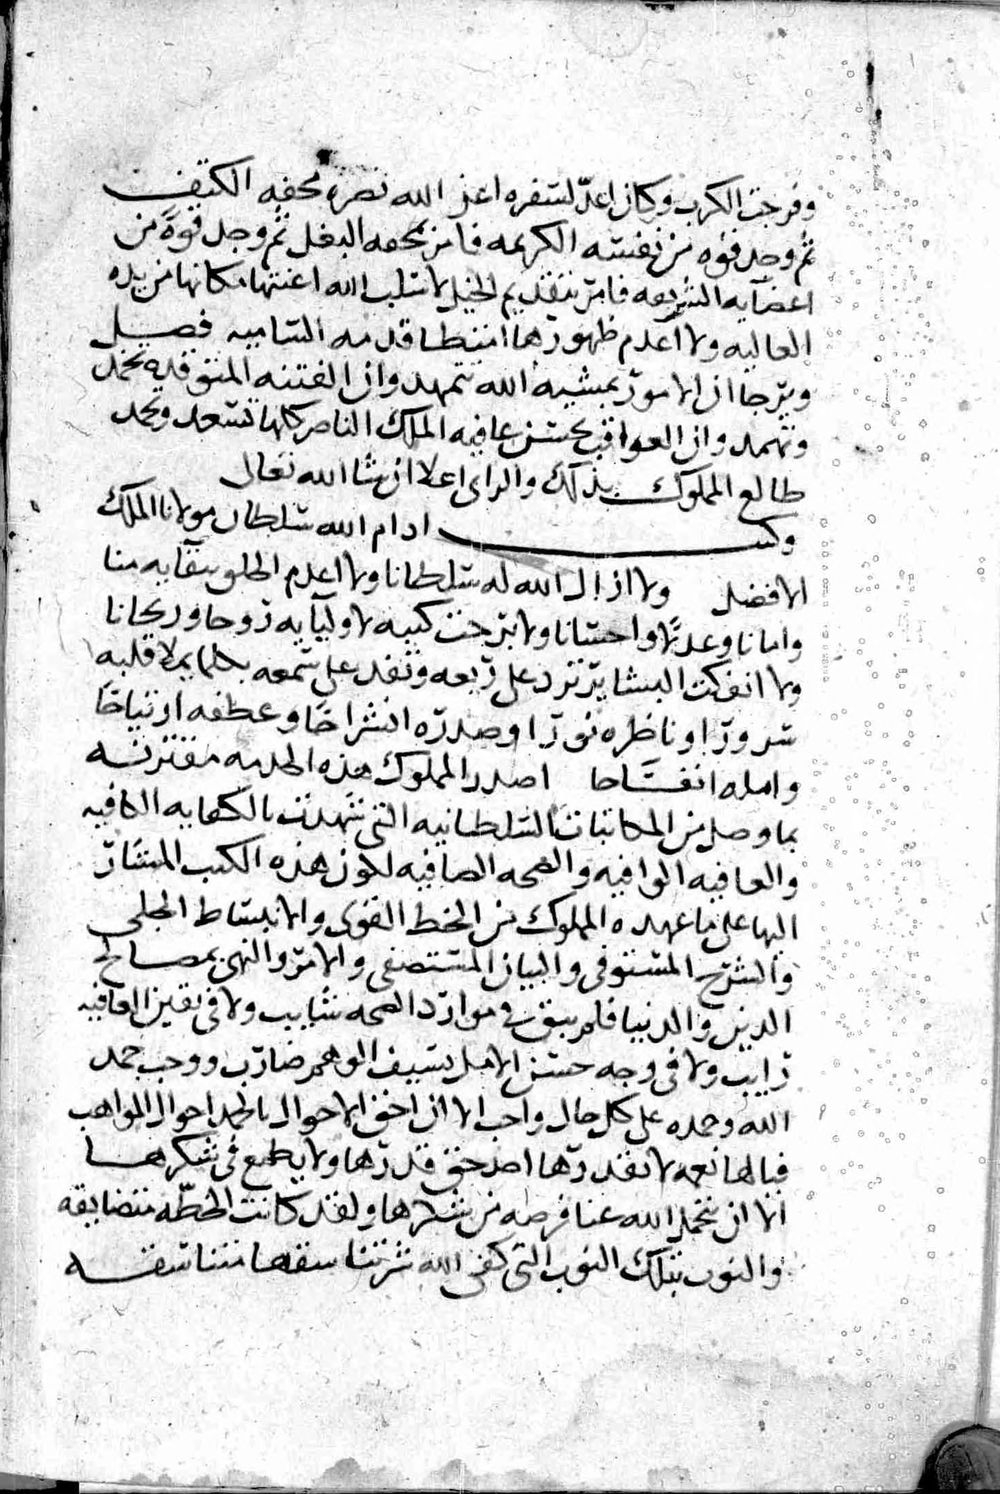 وفرجت الكرب وكان اعدّ لسفره اعز الله نصره محفه الكتف
ثم وجد قوه من نفسه الكريمه فامر بمحفه البغل ثم وجد قوةً من
اعضآيه الشريفه فامر بتقديم الخيل لا سلب الله اعنتها مكانها من يده
العاليه ولا اعدم ظهورها امتطا قدمه الساميه فصل
ويرجا ان الامور بمشيه الله تتمهد وان الفتنه المتوقده تخمد
وتهمد وان العواقب بحسن عافيه الملك الناصر كلها تسعد وتحمد
طالع المملوك بذلك والراى اعلا ان شا الله تعالى
وكتب ادام الله سلطان مولانا الملك
الافضل ولا ازال الله له سلطانا ولا اعدم الخلق ببقآيه منا
وامانا وعدلًا واحسانا ولا برحت كتبه لاوليآيه روحا وريحانا
ولا انفكت البشاير ترد على ربعه وتفد على سمعه بكلما يملا قلبه
سرورًا وناظره نورًا وصدره انشراحًا وعطفه ارتياحًا
وامله انفساحا اصدر المملوك هذه الخدمه مقترنه
بما وصل من المكاتبات السلطانيه التى شهدت بالكفايه الكافيه
والعافيه الوافيه والصحه الصافيه لكون هذه الكتب المشار
اليها على ما عهده المملوك من الخط القوى والانبساط الجلى
والشرح المستوفى والبيان المستصفى والامر والنهى بمصالح
الدين والدنيا فلم يبق فى موارد الصحه شايب ولا فى يقين العافيه
رايب ولا فى وجه حسن الامل بسيف الوهم ضارب ووجب حمد
الله وحمده على كل حال واجب الا ان احق الاحوال بالحمد احوال المواهب
فيالها نعمه لا يقدرها احد حق قدرها ولا يطمع فى شكرها
الا ان يتحمل الله عنا فرضه من شكرها ولقد كانت الخطّه متضايقه
والنوب بتلك النوب التى كفى الله شرتنا سقها متناسقه